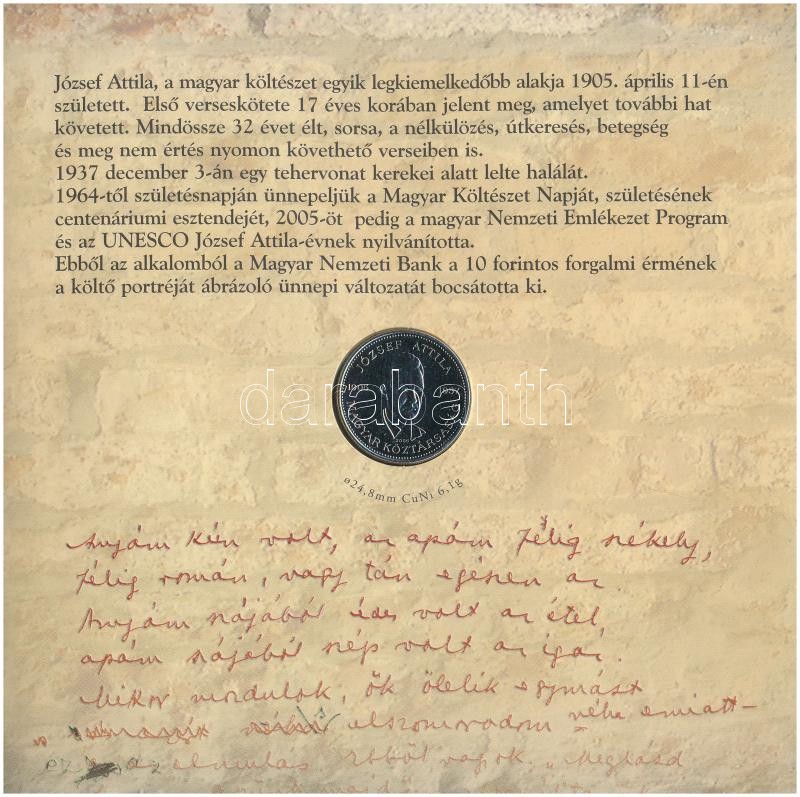 József Attila, a magyar költészet egyik legkiemelkedőbb alakja 1905. április 11-én
született. Első verseskötete 17 éves korában jelent meg, amelyet további hat
követett. Mindössze 32 évet élt, sorsa, a nélkülözés, útkeresés, betegség
és meg nem értés nyomon követhető verseiben is.
1937 december 3-án egy tehervonat kerekei alatt lelte halálát.
1964-től születésnapján ünnepeljük a Magyar Költészet Napját, születésének
centenáriumi esztendejét, 2005-öt pedig a magyar Nemzeti Emlékezet Program
és az UNESCO József Attila-évnek nyilvánította.
Ebből az alkalomból a Magyar Nemzeti Bank a 10 forintos forgalmi érmének
a költő portréját ábrázoló ünnepi változatát bocsátotta ki.
JÓZSEF ATTILA
1905 1937
MAGYAR KÖZTÁRSASÁG
darabanth
ø24,8mm CuNi 6,1g
Anyám kún volt, az apám félig székely,
félig román, vagy tán egészen az.
Anyám szájából édes volt az étel,
apám szájából szép volt az igaz.
Mikor mozdulok, ők ölelik egymást
elszomorodom néha emiatt –
ez az elmulás. Ebből vagyok. „Meglásd